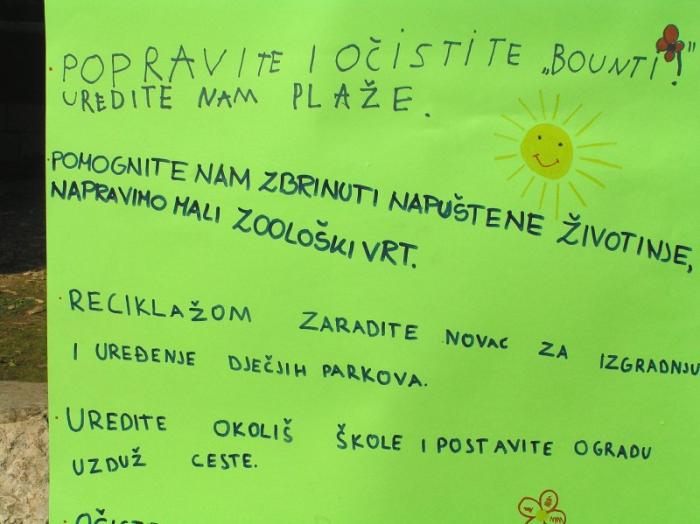 · POPRAVITE I OČISTITE „BOUNTI"!
UREDITE NAM PLAŽE.
· POMOGNITE NAM ZBRINUTI NAPUŠTENE ŽIVOTINJE,
NAPRAVIMO MALI ZOOLOŠKI VRT.
· RECIKLAŽOM ZARADITE NOVAC ZA IZGRADNJU
I UREĐENJE DJEČJIH PARKOVA.
· UREDITE OKOLIŠ ŠKOLE I POSTAVITE OGRADU
UZDUŽ CESTE.